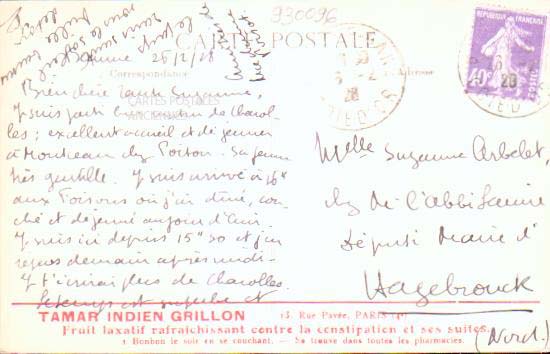 930096
CARTE POSTALE
Beaune 26/2/28
Correspondance
Adresse
Bien chère tante Suzanne,
J'suis parti hier matin de Charol-
les ; excellent accueil et déjeuner
à Montceau chez Porton. Sa femme
très gentille. J'suis arrivé à 16h
aux Poisons où j'ai dîné, cou-
ché et déjeuné aujourd'hui.
J'suis ici depuis 15h30 et j'en
repars demain après midi.
J't'écrirai plus de Charolles.
Le temps est superbe et
CARTES POSTALES
ANCIENNES
REPUBLIQUE FRANÇAISE
40c
POSTES
28
Melle Suzanne Arbelet,
chez Mr l'abbé Lemire
Député Maire d'
Hazebrouck
(Nord)
TAMAR INDIEN GRILLON 13, Rue Pavée, PARIS (4e)
Fruit laxatif rafraîchissant contre la constipation et ses suites.
1 Bonbon le soir en se couchant. - Se trouve dans toutes les pharmacies.